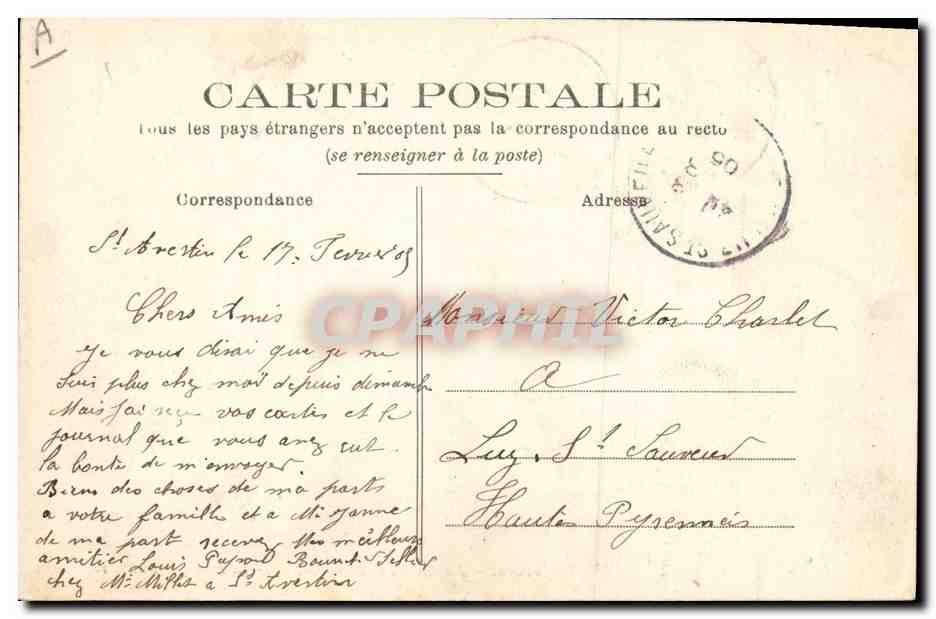 A
CARTE POSTALE
Tous les pays étrangers n'acceptent pas la correspondance au recto
(se renseigner à la poste)
Correspondance
Adresse
St Avertin le 17. Fevrier 05
Chers Amis
Je vous dirai que je ne
suis plus chez moï depuis dimanche
Mais j'ai reçu vos cartes et le
journal que vous avez eut
la bonté de m'envoyer.
Biens des choses de ma parts
a votre famille et a Mr
de ma part recevez Mes meilleurs
amitier Louis
chez Mr Millet a St Avertin
Monsieur Victor Charlet
a
Luz. St Sauveur
Hautes Pyrennéis
LUZ-ST-SAUVEUR
05
CPAPHIL